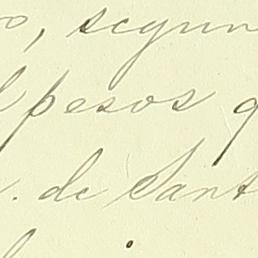 o, segun
l pesos q
. de Sant